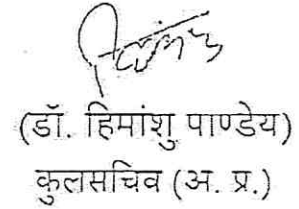 (डॉ. हिमांशु पाण्डेय)
कुलसचिव (अ. प्र.)